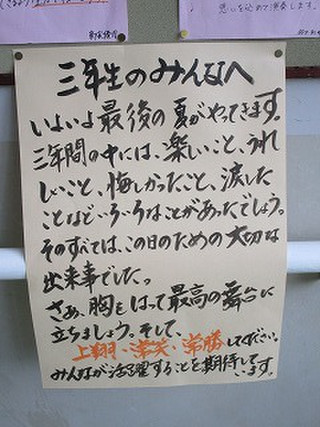 三年生のみんなへ
いよいよ最後の夏がやってきます。
三年間の中には、楽しいこと、うれ
しいこと、悔しかったこと、涙した
ことなどいろいろなことがあったでしょう。
そのすべては、この日のための大切な
出来事でした。
さあ、胸をはって最高の舞台に
立ちましょう。そして、
上翔・常笑・常勝してください。
みんなが活躍することを期待して
います。